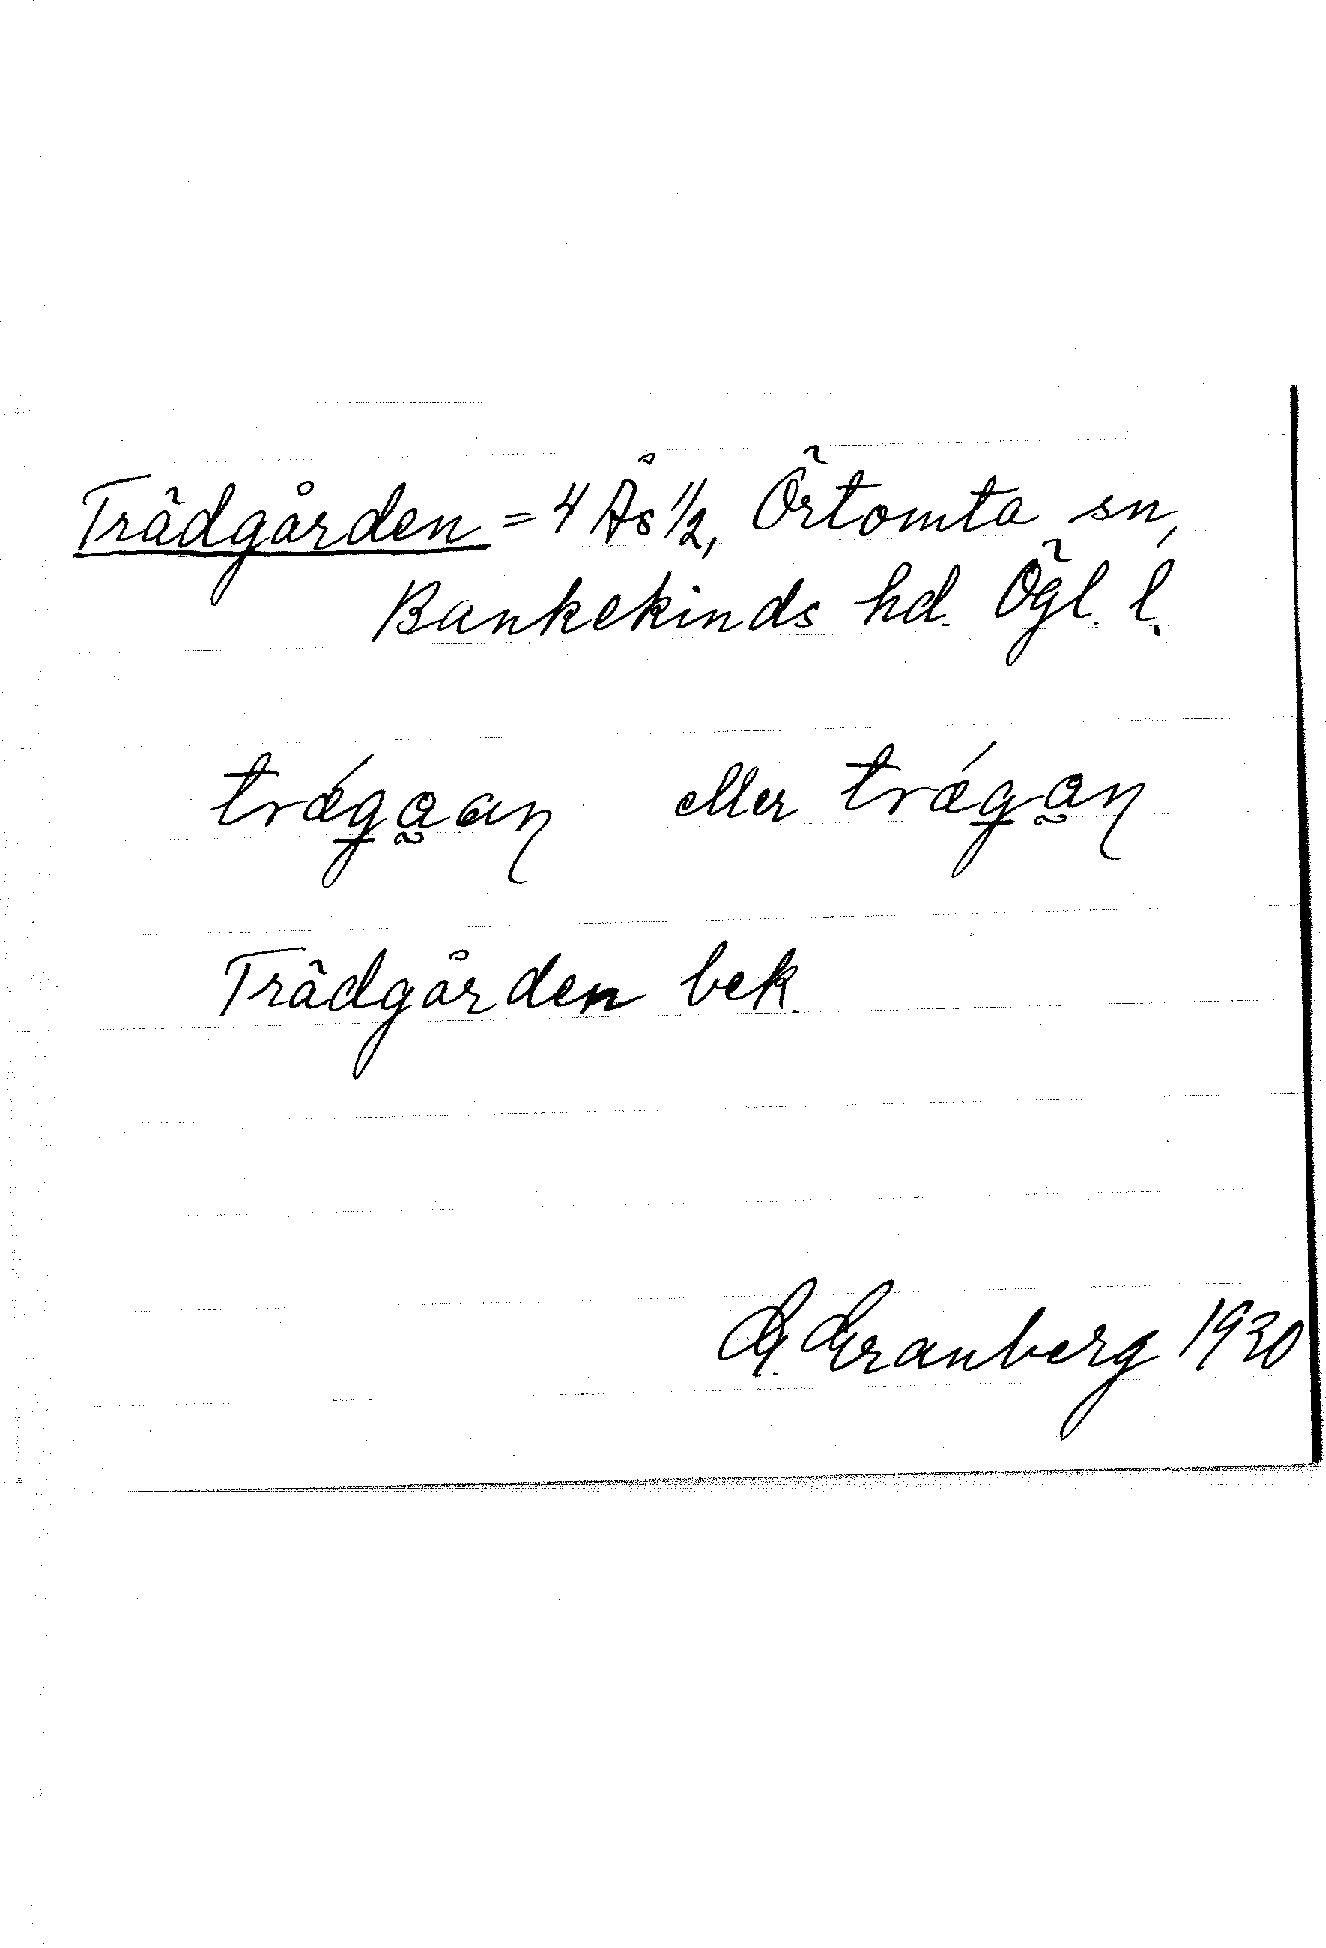 Trädgården = 4 Ås 1/2, Örtomta sn,
Bankekinds hd. Ögl. l.
trǽgo̰an eller trǽgo̰n
Trädgården bek.
G. Granberg 1930